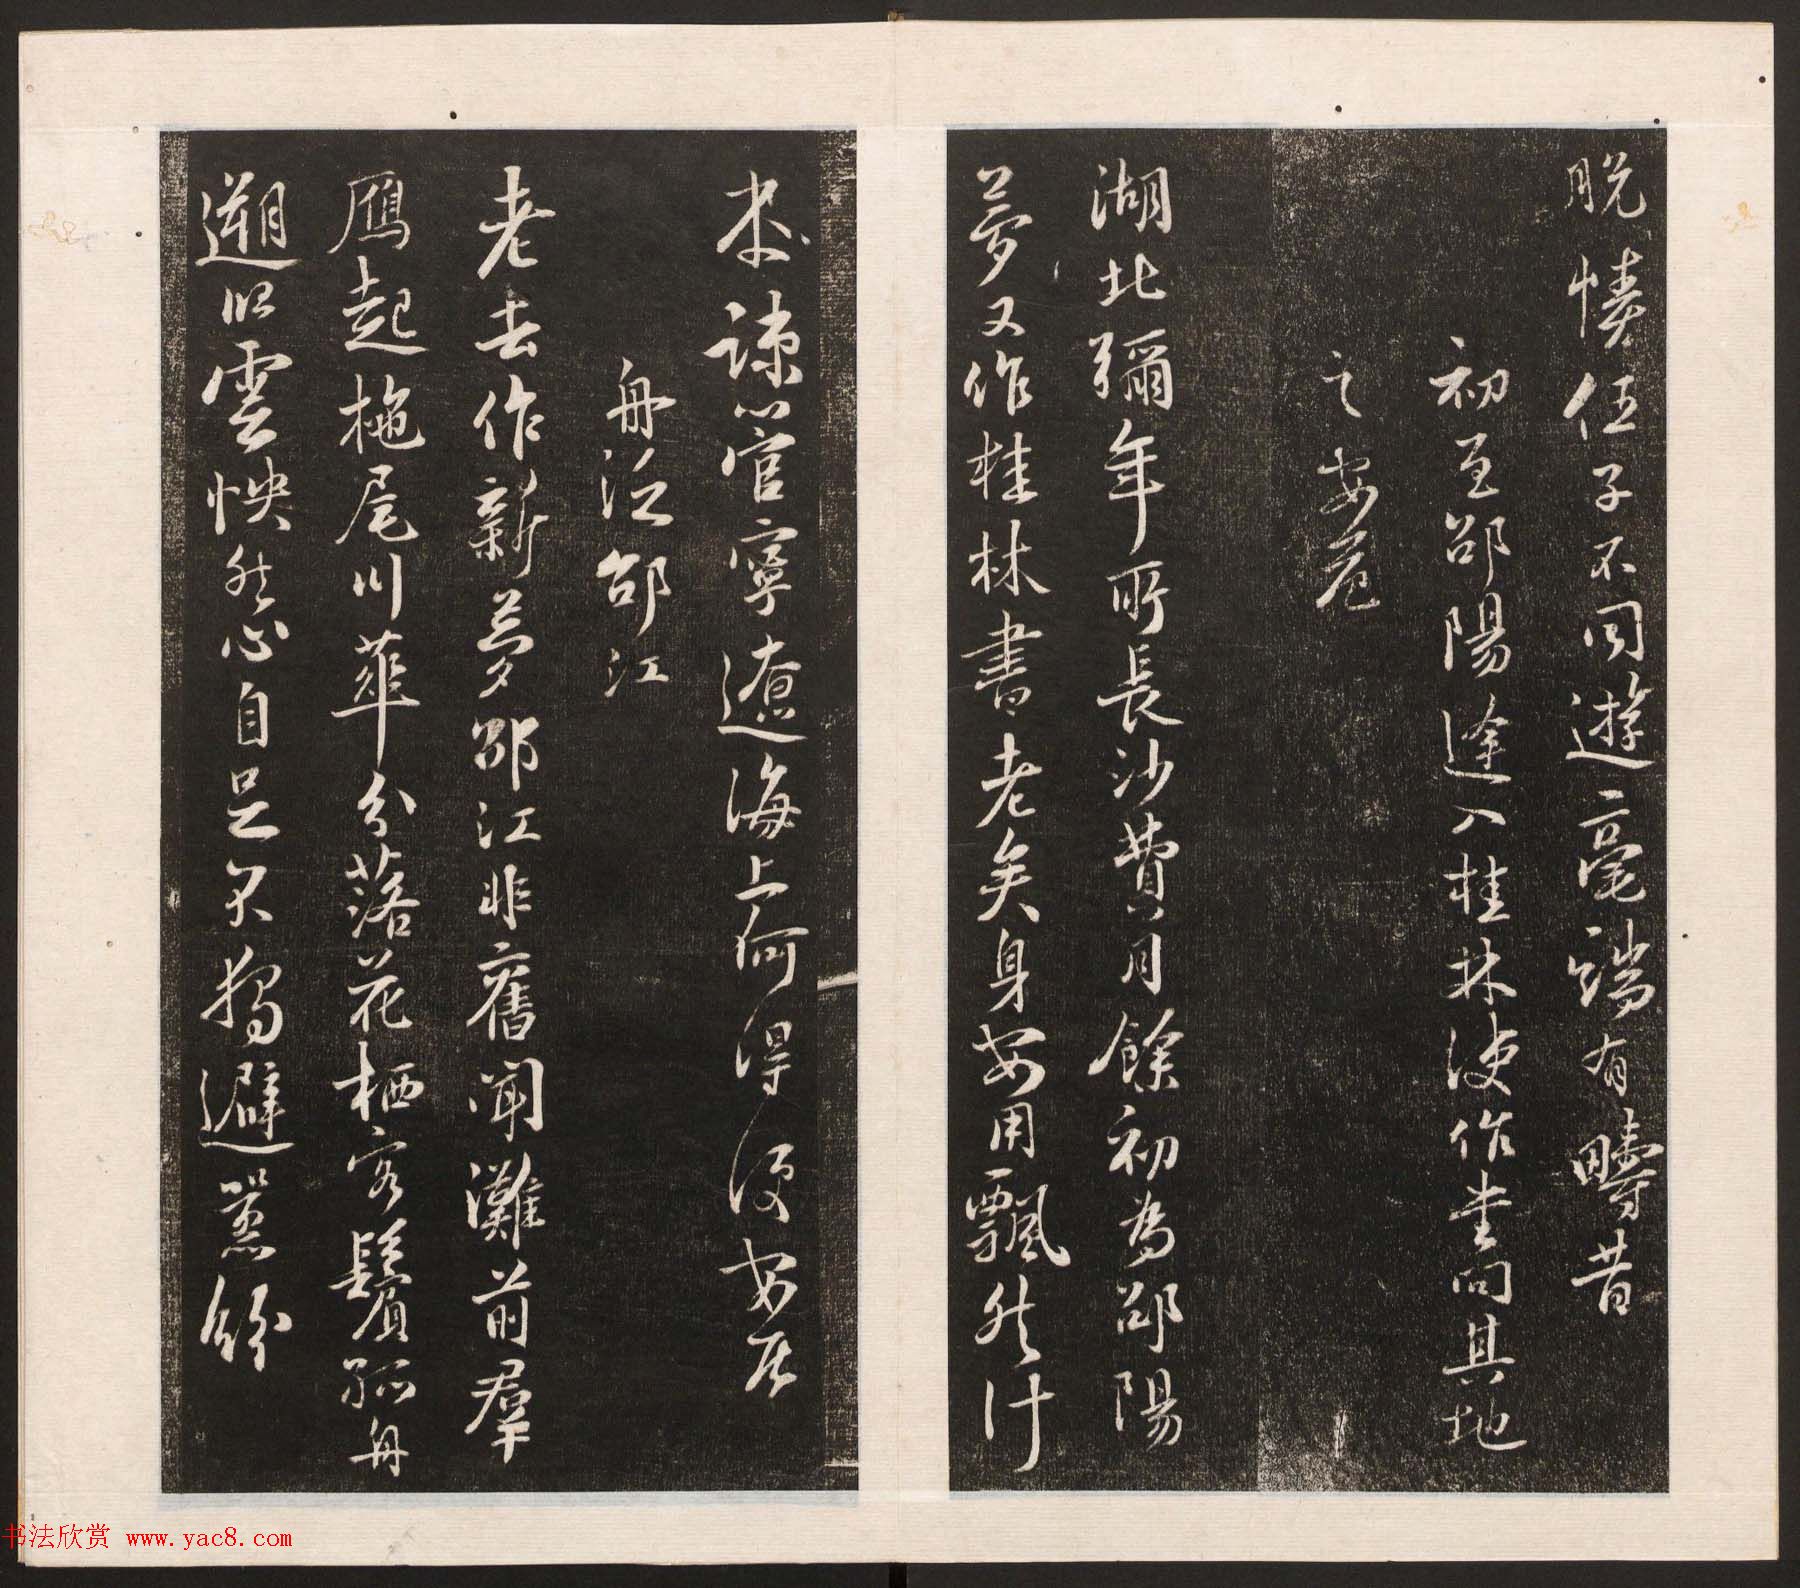 脫悽任子不同遊毫端有疇昔
初至邵陽逢入桂林使作書問其地
之安危
湖北彌年所長沙費月餘初為邵陽
夢又作桂林書老矣身安用飄然計
本疎管寧遼海上何得便安居
舟泛邵江
老去作新夢邵江非舊聞灘前群
鴈起柂尾川華分落花栖客鬢孤舟
遡歸雲快然心自足不獨避囂紛
书法欣赏 www.yac8.com